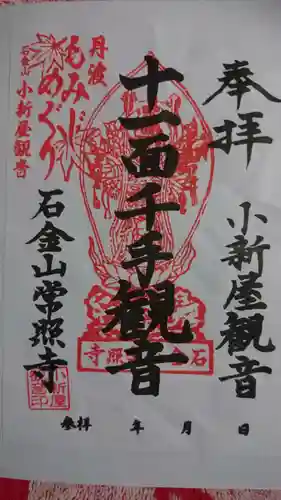 奉拝
小新屋観音
十一面千手観音
丹波
もみじめぐり
石金山
小新屋観音
石金山常照寺
参拝 年 月 日